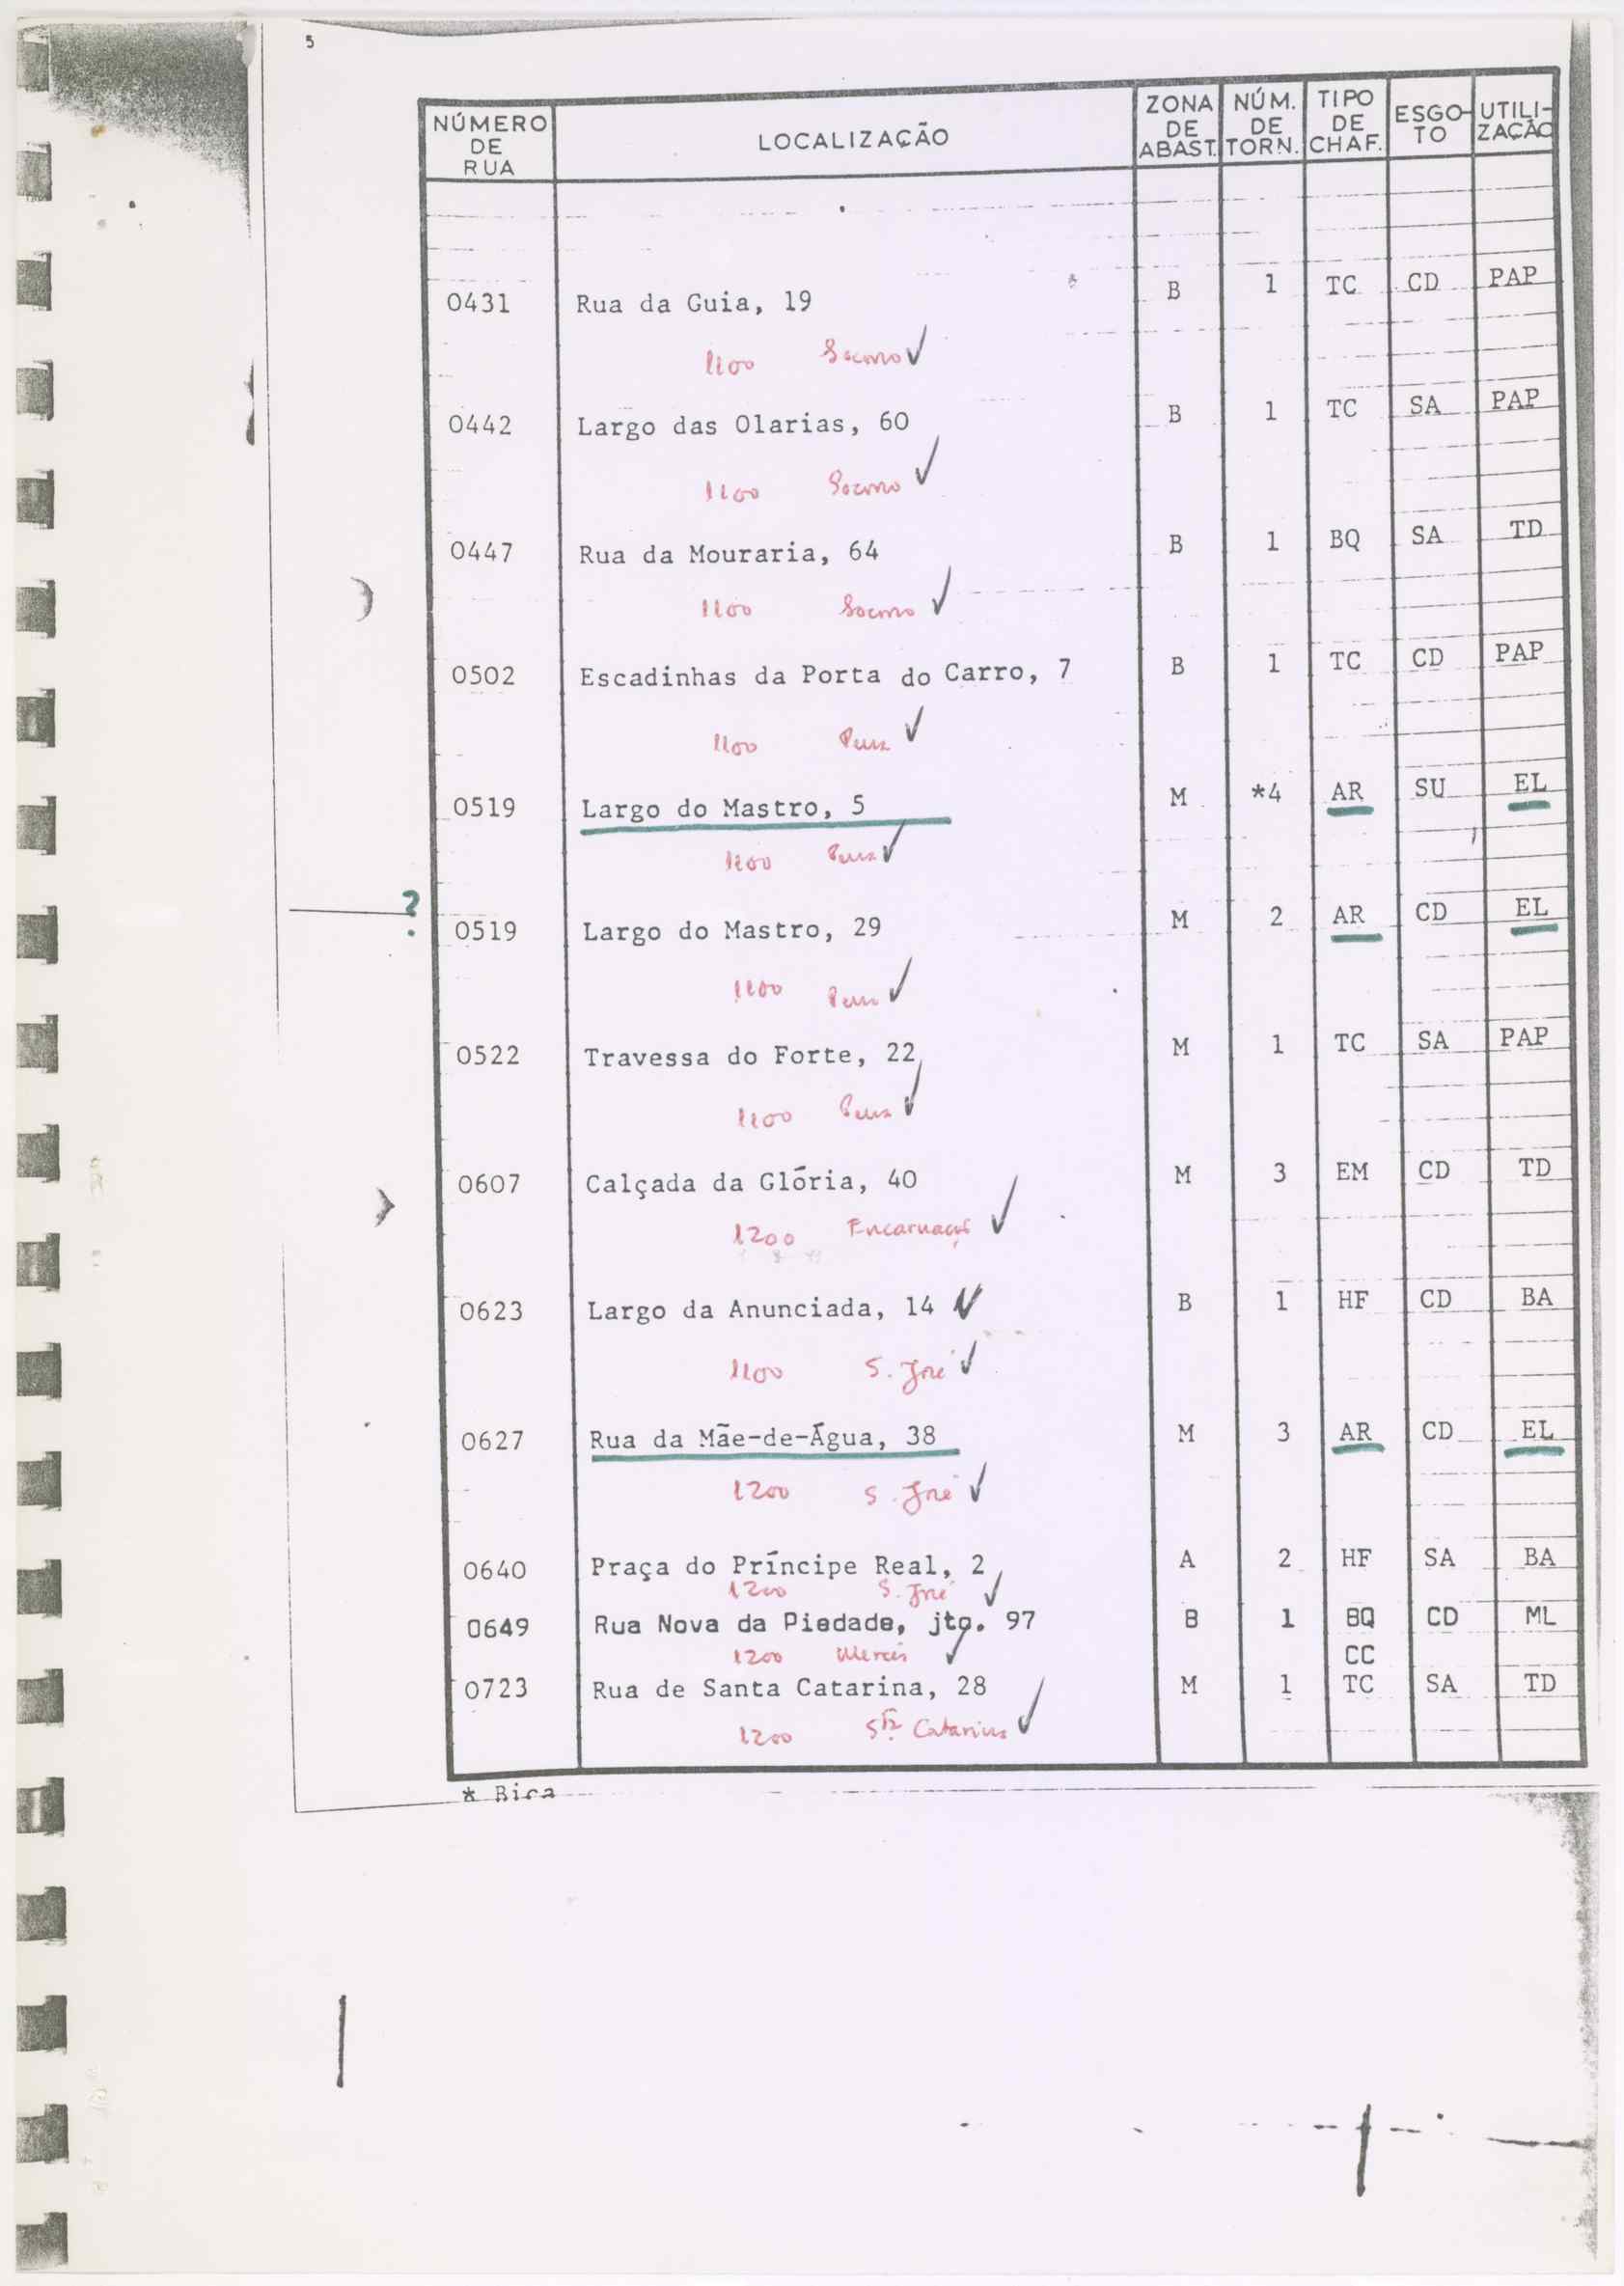 5
NÚMERO DE RUA LOCALIZAÇÃO ZONA DE ABAST. NÚM. DE TORN. TIPO DE CHAF. ESGO-TO UTILI-ZAÇÃO
0431 Rua da Guia, 19 B 1 TC CD PAP
1100 Socorro ✓
0442 Largo das Olarias, 60 B 1 TC SA PAP
1100 Socorro ✓
0447 Rua da Mouraria, 64 B 1 BQ SA TD
1100 Socorro ✓
0502 Escadinhas da Porta do Carro, 7 B 1 TC CD PAP
1100 Pena ✓
0519 Largo do Mastro, 5 M *4 AR SU EL
1100 Pena ✓
? 0519 Largo do Mastro, 29 M 2 AR CD EL
1100 Pena ✓
0522 Travessa do Forte, 22 M 1 TC SA PAP
1100 Pena ✓
0607 Calçada da Glória, 40 M 3 EM CD TD
1200 Encarnação ✓
0623 Largo da Anunciada, 14 ✓ B 1 HF CD BA
1100 S. José ✓
0627 Rua da Mãe-de-Água, 38 M 3 AR CD EL
1200 S. José ✓
0640 Praça do Príncipe Real, 2 A 2 HF SA BA
1200 S. José ✓
0649 Rua Nova da Piedade, jto. 97 B 1 BQ CD ML
1200 Mercês ✓ CC
0723 Rua de Santa Catarina, 28 M 1 TC SA TD
1200 Stª Catarina ✓
* Bica